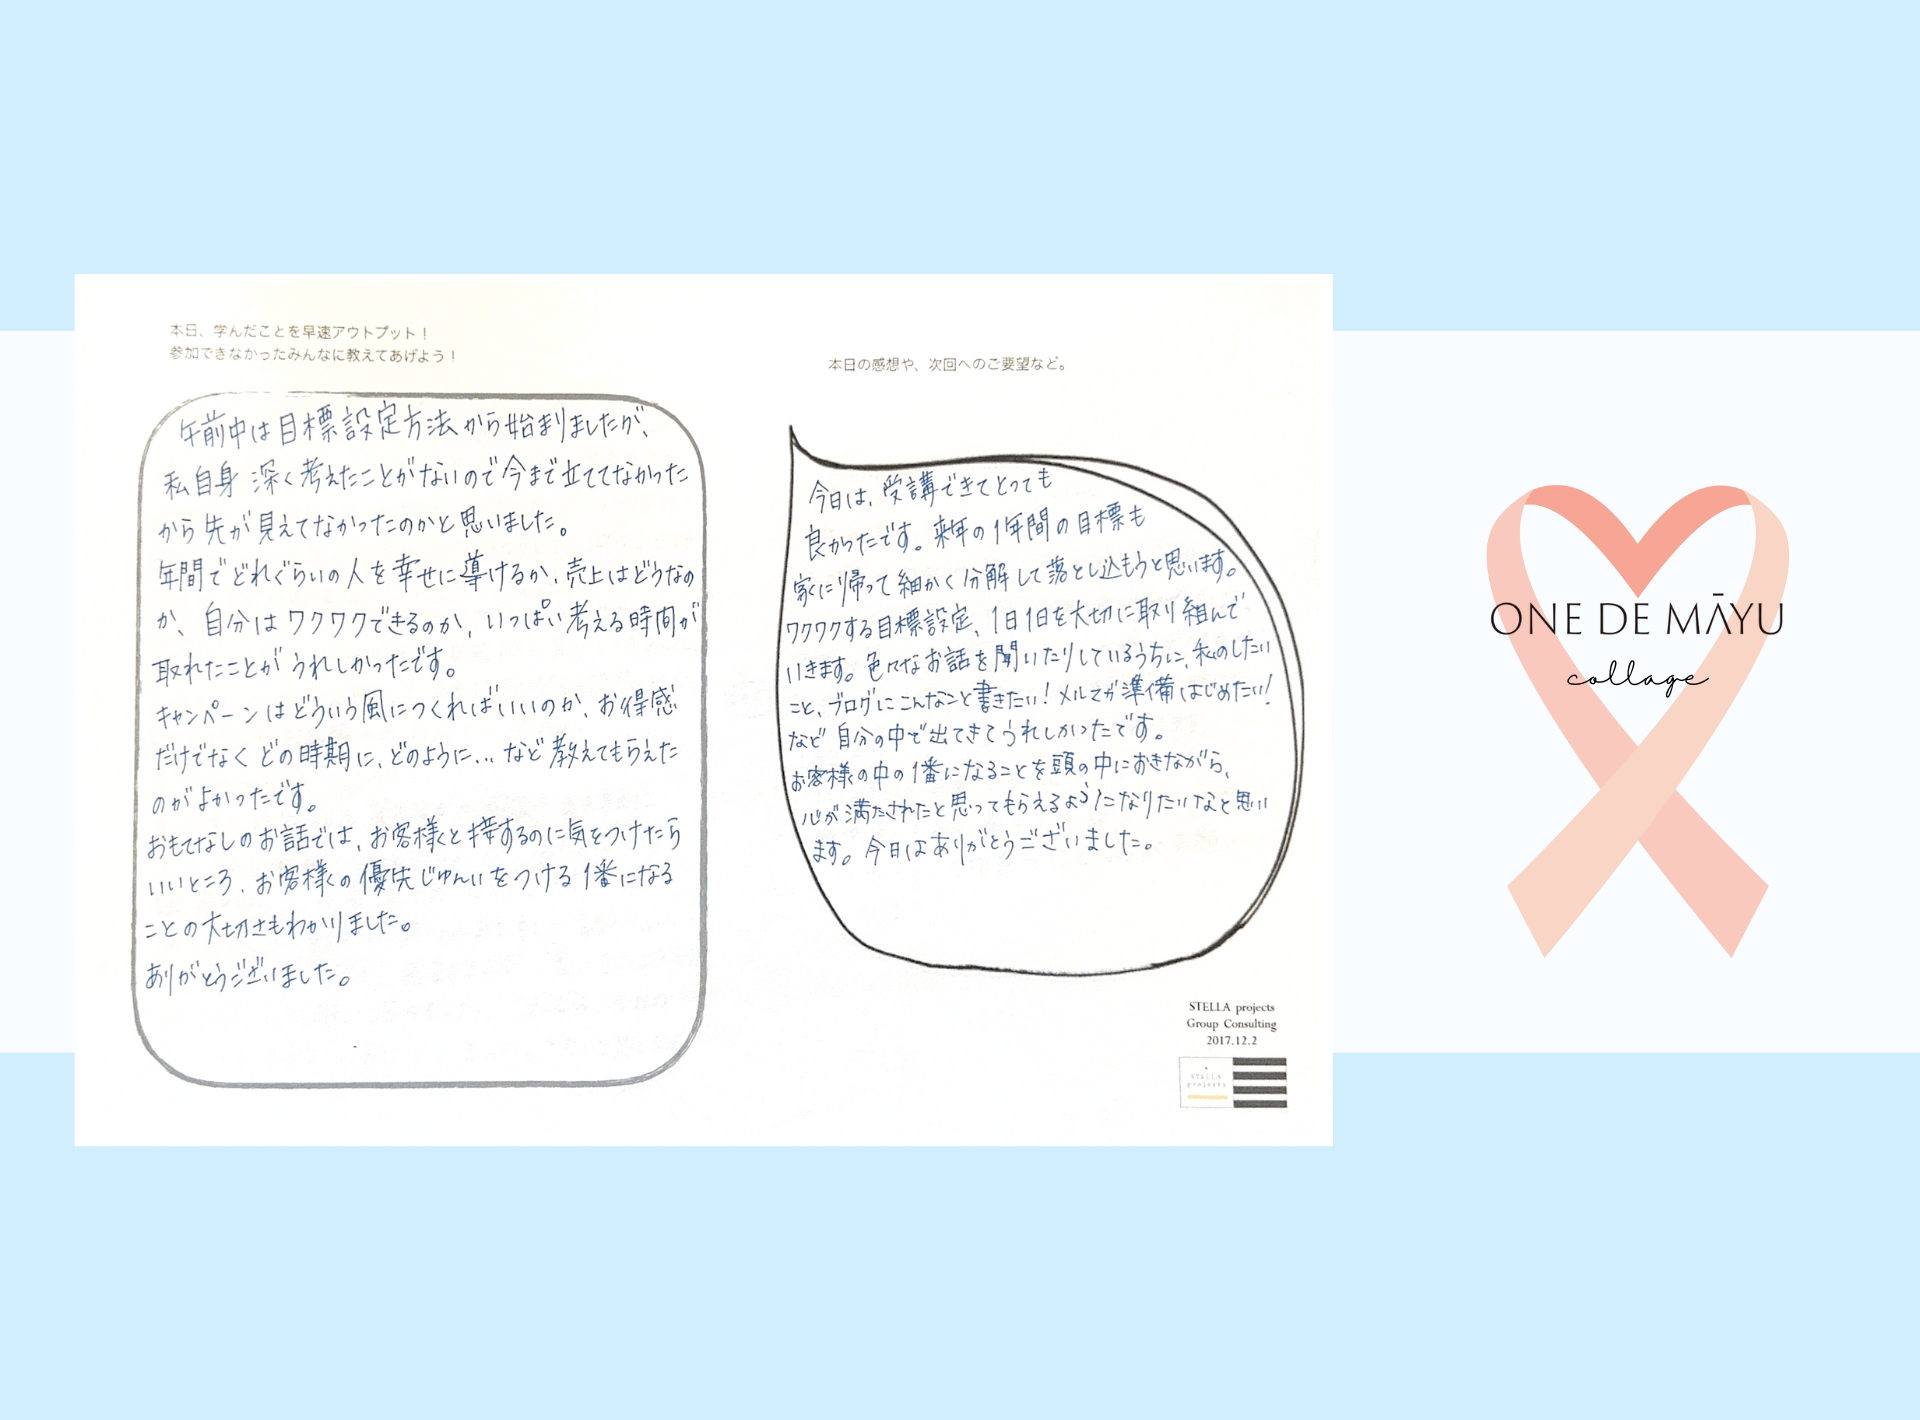 本日、学んだことを早速アウトプット！
参加できなかったみんなに教えてあげよう！
午前中は目標設定方法から始まりましたが、
私自身 深く考えたことがないので今まで立ててなかった
から先が見えてなかったのかと思いました。
年間でどれぐらいの人を幸せに導けるか、売上はどうなの
か、自分はワクワクできるのか、いっぱい考える時間が
取れたことがうれしかったです。
キャンペーンはどういう風につくればいいのか、お得感
だけでなくどの時期に、どのように...など教えてもらえた
のがよかったです。
おもてなしのお話では、お客様と接するのに気をつけたら
いいところ、お客様の優先じゅんいをつける1番になる
ことの大切さもわかりました。
ありがとうございました。
本日の感想や、次回へのご要望など。
今日は、受講できてとっても
良かったです。来年の1年間の目標も
家に帰って細かく分解して落とし込もうと思います。
ワクワクする目標設定、1日1日を大切に取り組んで
いきます。色々なお話を聞いたりしているうちに、私のしたい
こと、ブログにこんなこと書きたい！メルマガ準備はじめたい！
など自分の中で出てきてうれしかったです。
お客様の中の1番になることを頭の中におきながら、
心が満たされたと思ってもらえるようになりたいなと思い
ます。今日はありがとうございました。
STELLA projects
Group Consulting
2017.12.2
STELLA
projects
ONE DE MĀYU
collage